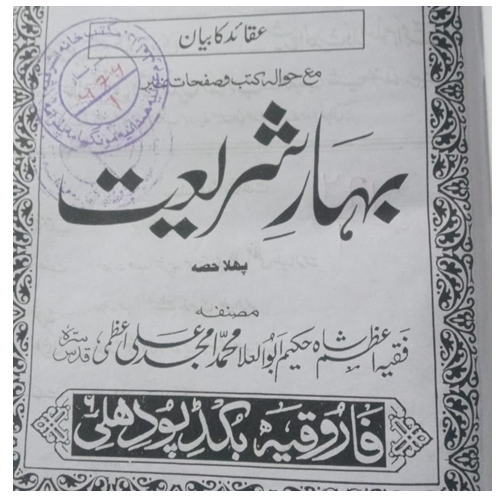 عقائد کا بیان
مع حوالہ کتب و صفحات نمبر
بہارِ شریعت
پہلا حصہ
مصنفہ
فقیہ اعظم شاہ حکیم ابوالعلا محمد امجد علی اعظمی قدس سرہ
فاروقیہ بکڈپو دھلی